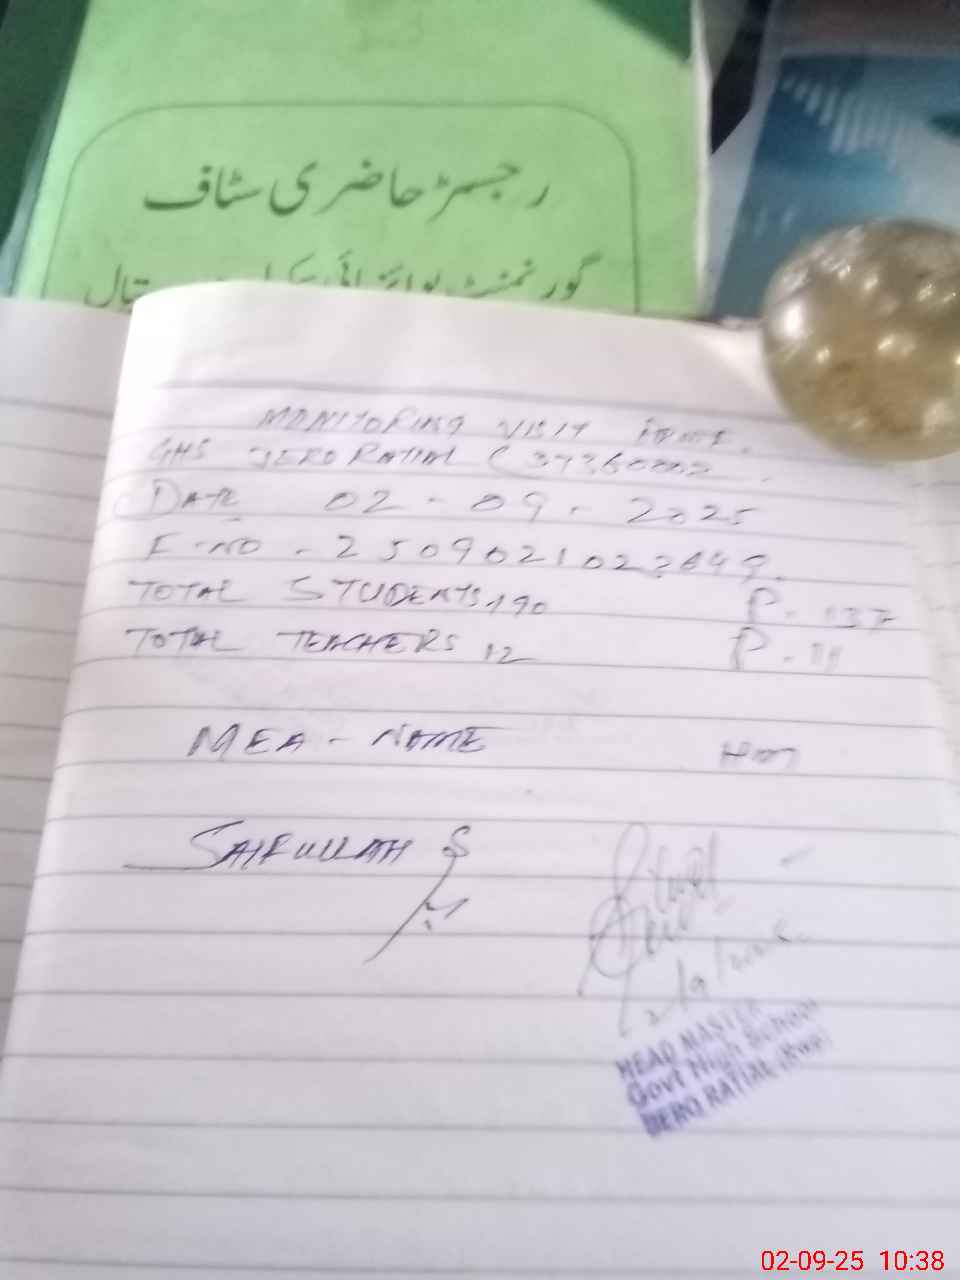 رجسٹر حاضری سٹاف
گورنمنٹ بوائز ہائی سکول
MONITORING VISIT
GHS DERO RATIAL (37360002
DATE 02-09-2025
TOTAL STUDENTS, 190 P-137
TOTAL TEACHERS 12 P-11
MEA-NAME HM
SAIFULLAH
HEAD MASTER
Govt High School
DERO RATIAL (Rwp)
02-09-25 10:38